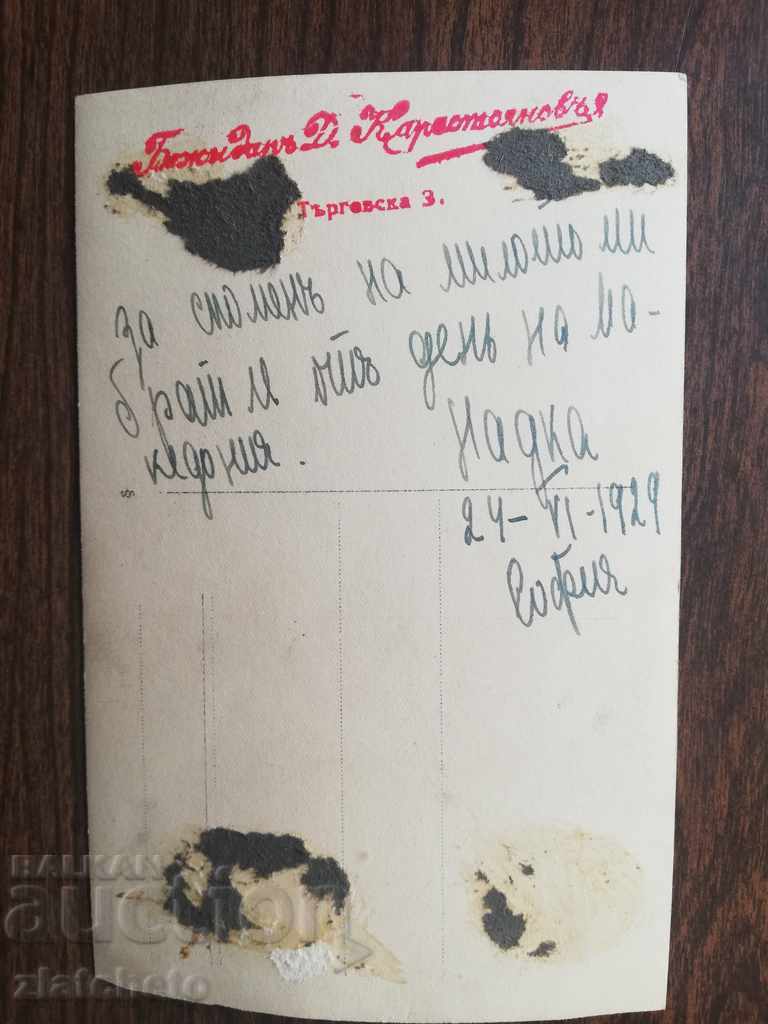 Божиданъ Д. Карастояновъ
Търговска 3.
За споменъ на милото ми
братче отъ деня на Ма-
кедония.
Надка
24-VI-1929
София
BALKAN
auction
zlatcheto